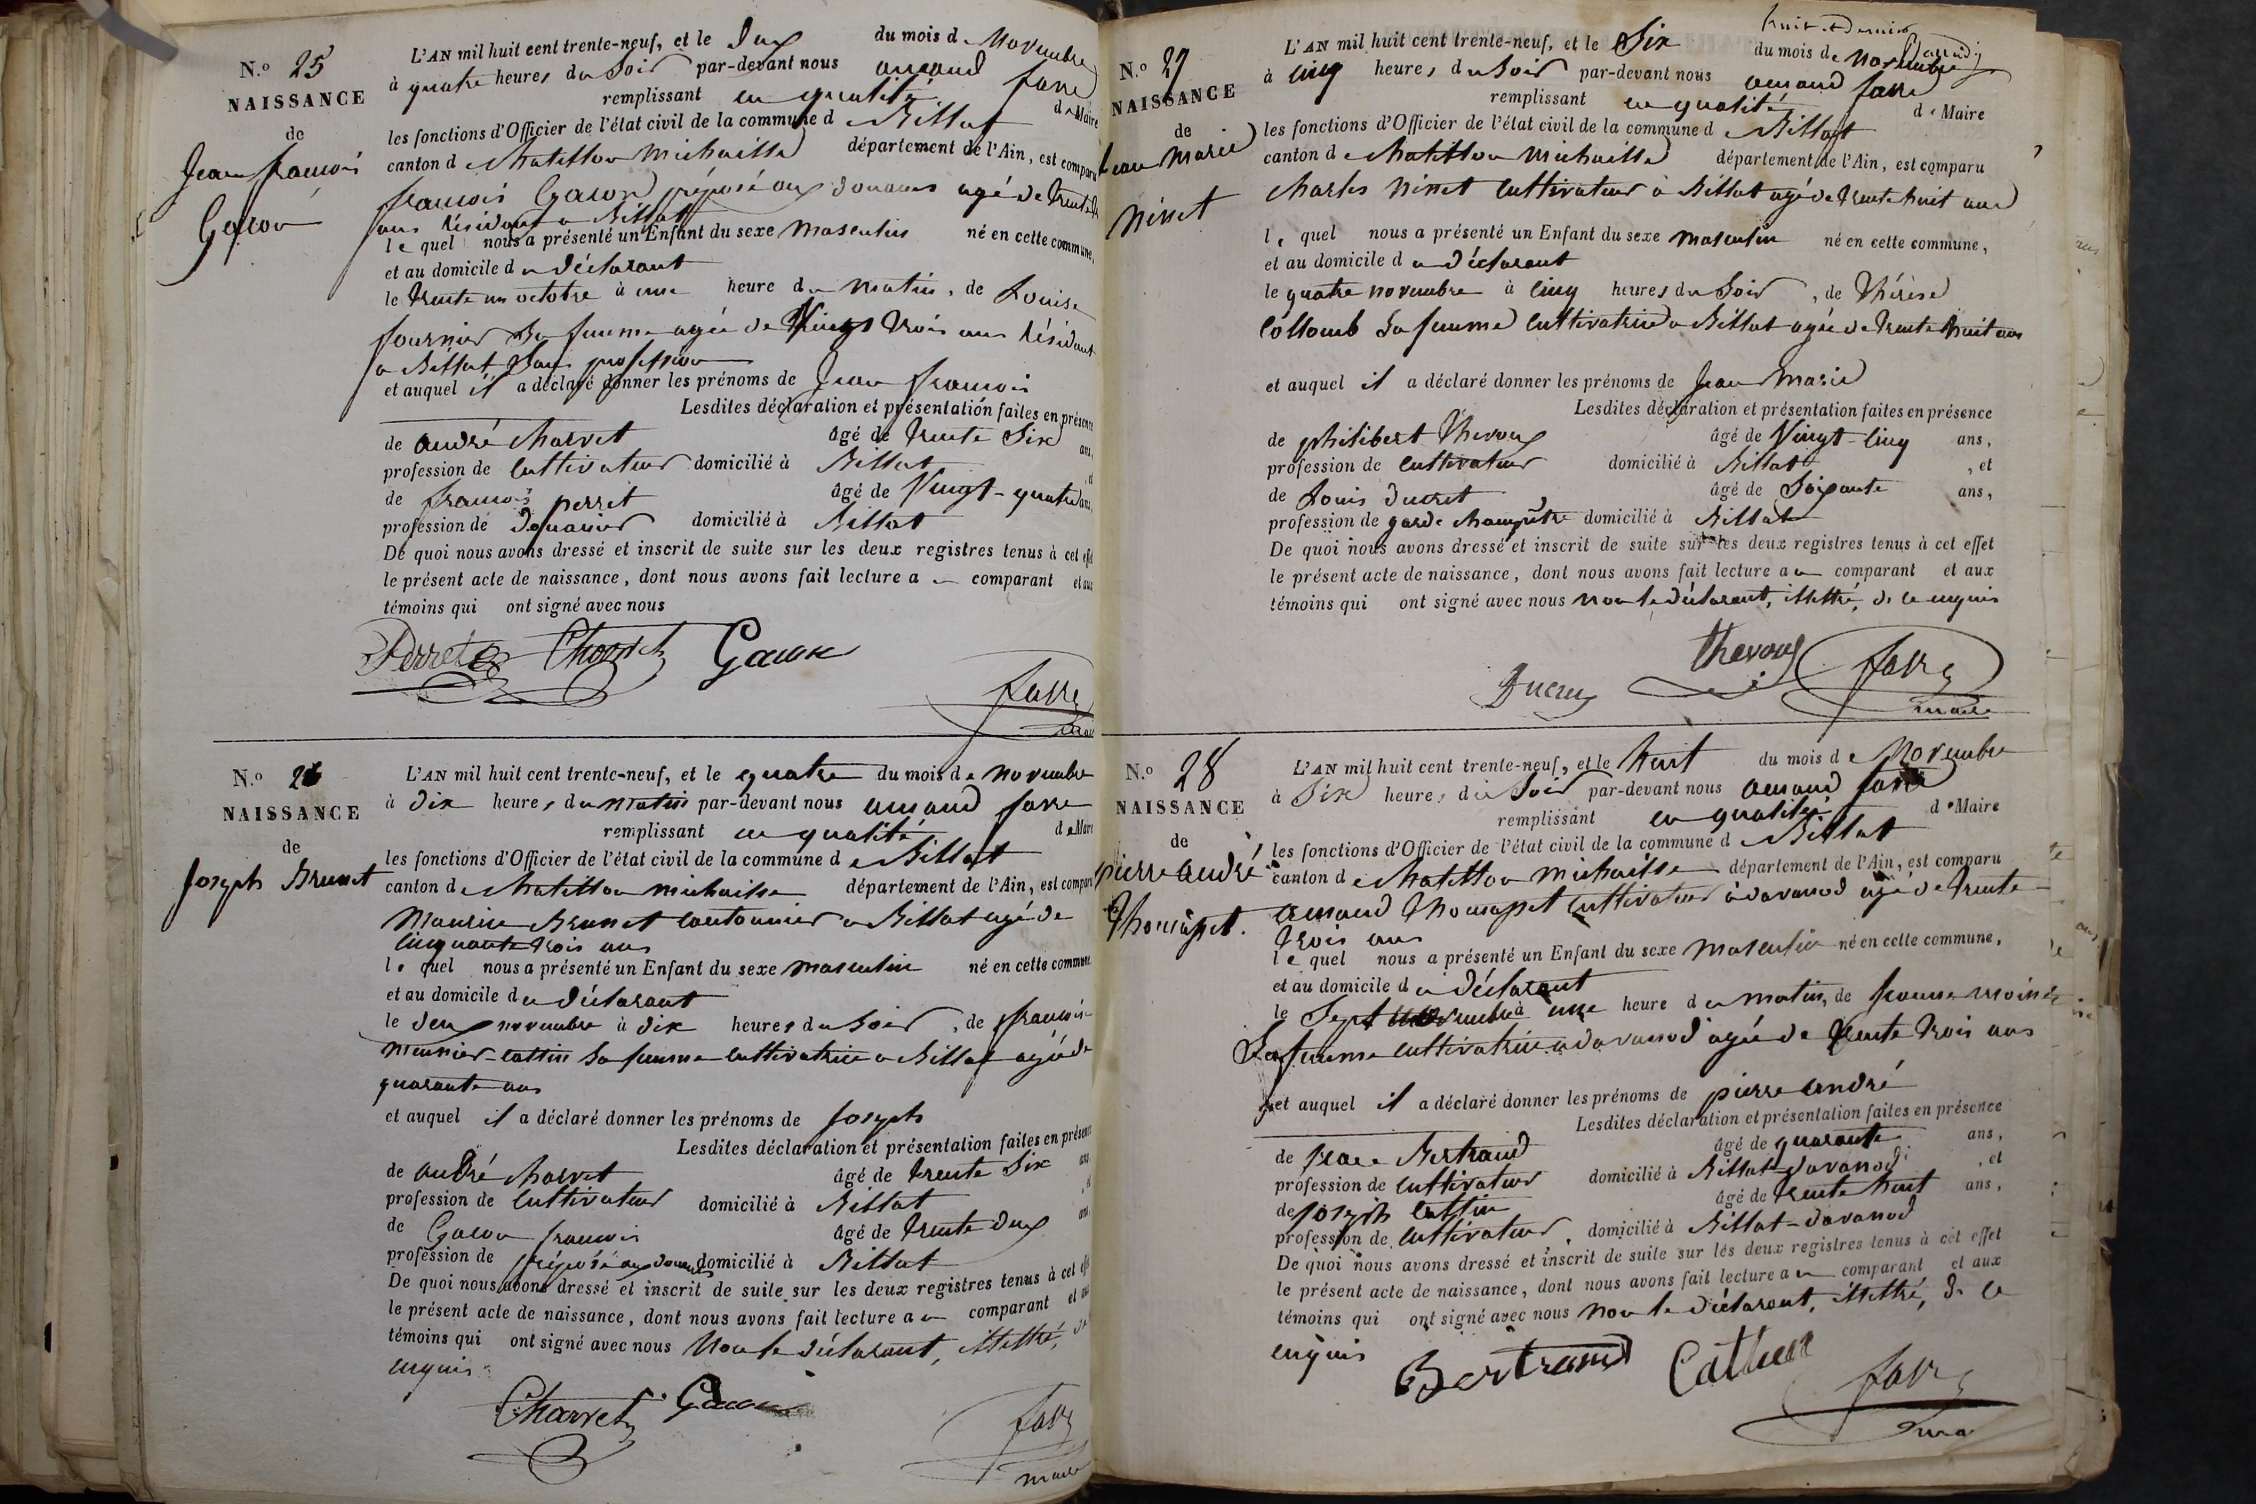 N.º 25
NAISSANCE
de
Jean françois
Gacon
L'AN mil huit cent trente-neuf, et le Deux du mois de Novembre
à quatre heures du Soir par-devant nous amand favre
remplissant en qualité de Maire
les fonctions d'Officier de l'état civil de la commune de Billiat
canton de Chatillon Michaille département de l'Ain, est comparu
françois Gacon préposé aux douanes agé de trente
ans résidant a Billiat
le quel nous a présenté un Enfant du sexe masculin né en cette commune,
et au domicile du déclarant
le trente un octobre à une heure du matin, de Louise
fournier Sa femme agée de Vingt trois ans résidant
a Billiat Sans profession
et auquel il a déclaré donner les prénoms de Jean françois
Lesdites déclaration et présentation faites en présence
de andré Charvet âgé de trente Six ans,
profession de cultivateur domicilié à Billiat et
de françois perret âgé de Vingt-quatre ans,
profession de Douanier domicilié à Billiat
De quoi nous avons dressé et inscrit de suite sur les deux registres tenus à cet effet
le présent acte de naissance, dont nous avons fait lecture au comparant et aux
témoins qui ont signé avec nous
Perret Charvet Gacon
favre
maire
N.º 26
NAISSANCE
de
Joseph Brunet
L'AN mil huit cent trente-neuf, et le quatre du mois de novembre
à dix heures du matin par-devant nous amand favre
remplissant en qualité de Maire
les fonctions d'Officier de l'état civil de la commune de Billiat
canton de Chatillon michaille département de l'Ain, est comparu
Maurice Brunet cantonnier a Billiat agé de
cinquante trois ans
le quel nous a présenté un Enfant du sexe masculin né en cette commune
et au domicile du déclarant
le deux novembre à dix heures du Soir, de françoise
meunier-cattin Sa femme cultivatrice a Billiat agée de
quarante ans
et auquel il a déclaré donner les prénoms de Joseph
Lesdites déclaration et présentation faites en présence
de andré Charvet âgé de trente Six ans
profession de cultivateur domicilié à Billiat
de Gacon françois âgé de trente deux ans
profession de préposé aux douanes domicilié à Billiat
De quoi nous avons dressé et inscrit de suite sur les deux registres tenus à cet effet
le présent acte de naissance, dont nous avons fait lecture au comparant et aux
témoins qui ont signé avec nous Non le déclarant, illettré, de ce
enquis
Charvet Gacon
favre
maire
huit et dernier
N.º 27
NAISSANCE
de
Jean Marie
Ninet
L'AN mil huit cent trente-neuf, et le Six du mois de Novembre
à cinq heures du Soir par-devant nous amand favre
remplissant en qualité de Maire
les fonctions d'Officier de l'état civil de la commune de Billiat
canton de Chatillon Michaille département de l'Ain, est comparu
Charles Ninet cultivateur à Billiat agé de trente huit ans
le quel nous a présenté un Enfant du sexe masculin né en cette commune,
et au domicile du déclarant
le quatre novembre à cinq heures du Soir, de thérèse
Collomb Sa femme cultivatrice a Billiat agée de trente huit ans
et auquel il a déclaré donner les prénoms de Jean Marie
Lesdites déclaration et présentation faites en présence
de philibert thevoux âgé de Vingt-cinq ans,
profession de cultivateur domicilié à Billiat, et
de Louis Ducret âgé de Soixante ans,
profession de garde champêtre domicilié à Billiat
De quoi nous avons dressé et inscrit de suite sur les deux registres tenus à cet effet
le présent acte de naissance, dont nous avons fait lecture au comparant et aux
témoins qui ont signé avec nous non le déclarant, illettré, de ce enquis
thevoux favre
maire
N.º 28
NAISSANCE
de
pierre andré
L'AN mil huit cent trente-neuf, et le huit du mois de Novembre
à Six heures du Soir par-devant nous amand favre
remplissant en qualité de Maire
les fonctions d'Officier de l'état civil de la commune de Billiat
canton de Chatillon michaille département de l'Ain, est comparu
amand cultivateur à davanod agé de trente
trois ans
le quel nous a présenté un Enfant du sexe masculin né en cette commune,
et au domicile du déclarant
le Sept novembre à une heure du matin, de
Sa femme cultivatrice a davanod agée de trente trois ans
et auquel il a déclaré donner les prénoms de pierre andré
Lesdites déclaration et présentation faites en présence
de Bertrand âgé de quarante ans,
profession de cultivateur domicilié à Billiat davanod, et
de Joseph cattin âgé de trente huit ans,
profession de cultivateur, domicilié à Billiat-davanod
De quoi nous avons dressé et inscrit de suite sur les deux registres tenus à cet effet
le présent acte de naissance, dont nous avons fait lecture au comparant et aux
témoins qui ont signé avec nous non le déclarant, illettré, de ce
enquis
Bertrand Cattin favre